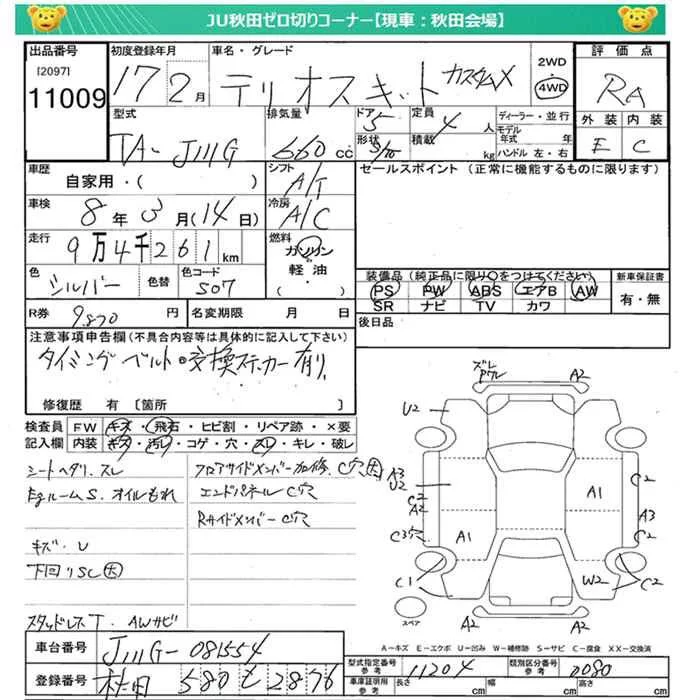 JU秋田ゼロ切りコーナー【現車：秋田会場】
出品番号 初度登録年月 車名・グレード 2WD 評価点
[2097] 11009 17 2月 テリオスキット カスタムX 4WD RA
型式 排気量 ドア 定員 ディーラー・並行 外装 内装
TA-J111G 660cc 5 4人 モデル年式 年 E C
形状 5/ 積載 kg ハンドル 左・右
車歴 シフト セールスポイント（正常に機能するものに限ります）
自家用・( ) A/T
車検 冷房
8年3月(14日) A/C
走行 燃料
9万4千261km ガソリン
軽油
( )
色 色替 色コード 装備品（純正品に限り○をつけてください） 新車保証書
シルバー S07 PS PW ABS エアB AW 有・無
SR ナビ TV カワ
R券 9,870円 名変期限 月 日 後日品
注意事項申告欄(不具合内容等は具体的に記入して下さい)
タイミングベルト交換ステッカー有り
修復歴 有〔箇所 〕
検査員 FW キズ・飛石・ヒビ割・リペア跡・×要
記入欄 内装 キズ・汚レ・コゲ・穴・スレ・キレ・破レ
シートヘタリ、スレ フロアサイドメンバー加修、C穴
Egルーム S、オイルもれ エンドパネルC穴
RサイドメンバーC穴
キズ・U
下回りSC
スタッドレスT、AWサビ
ズレ A2
U2
A3 U2 A1 C2
C2 A2 A3
C3穴 A1 C2
C1 W2 C2
スペア A2 A2
A－キズ E－エクボ U－凹み W－補修跡 S－サビ C－腐食 XX－交換済
車台番号 J111G-081554
型式指定番号 11204 類別区分番号 0080
登録番号 秋田 580 そ 2876
車庫証明用 長さ cm 幅 cm 高さ cm